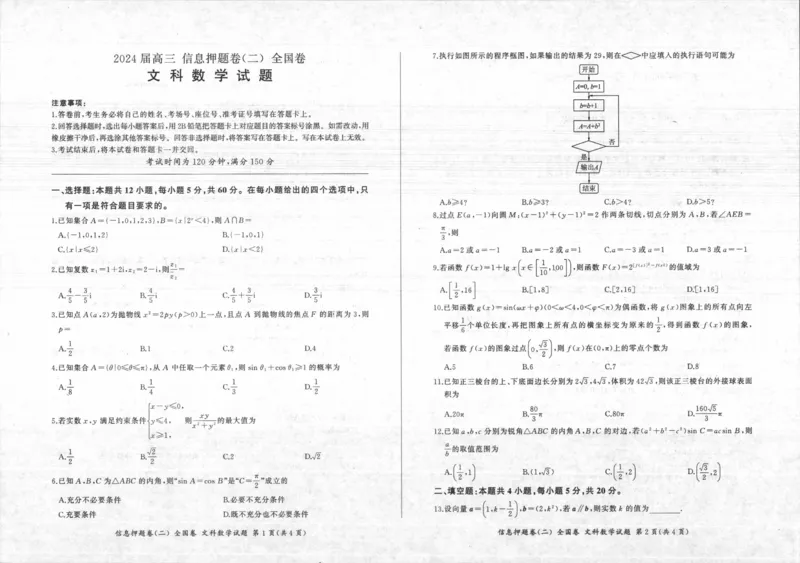 2024届高三 信息押题卷(二) 全国卷
文科数学试题
注意事项:
1.答卷前,考生务必将自己的姓名、考场号、座位号、准考证号填写在答题卡上。
2.回答选择题时,选出每小题答案后,用2B铅笔把答题卡上对应题目的答案标号涂黑。如需改动,用
橡皮擦干净后,再选涂其他答案标号。回答非选择题时,将答案写在答题卡上。写在本试卷上无效。
3.考试结束后,将本试卷和答题卡一并交回。
考试时间为120分钟,满分150分
一、选择题:本题共12小题,每小题5分,共60分。在每小题给出的四个选项中,只
有一项是符合题目要求的。
1.已知集合A={-1,0,1,2,3},B={x|2ˣ<4},则A∩B=
A.{-1,0,1,2} B.{-1,0,1}
C.{x|x≤2} D.{x|x<2}
2.已知复数z₁=1+2i,z₂=2-i,则z₁/z₂=
A.4/5-3/5i B.4/5i C.4/5+3/5i D.3/5i
3.已知点A(a,2)为抛物线x²=2py(p>0)上一点,且点A到抛物线的焦点F的距离为3,则
p=
A.1/2 B.1 C.2 D.4
4.已知集合A={θ|0≤θ≤π},从A中任取一个元素θ₁,则sin θ₁+cos θ₁≥1的概率为
A.1/8 B.1/4 C.1/3 D.1/2
5.若实数x,y满足约束条件{x-y≤0, y≤4, x≥1, 则xy/(x²+y²)的最大值为
A.1/2 B.√2/2 C.2 D.√2
6.已知A,B,C为△ABC的内角,则“sin A=cos B”是“C=π/2”成立的
A.充分不必要条件 B.必要不充分条件
C.充要条件 D.既不充分也不必要条件
信息押题卷(二) 全国卷 文科数学试题 第1页(共4页)
7.执行如图所示的程序框图,如果输出的结果为29,则在◇中应填入的执行语句可能为
开始
A=0, b=1
b=b+1
A=A+b²
否
是
输出A
结束
A.b≥4? B.b≥3? C.b>4? D.b>5?
8.过点E(a,-1)向圆M:(x-1)²+(y-1)²=2作两条切线,切点分别为A,B,若∠AEB=
π/3,则
A.a=2或a=-1 B.a=-2或a=1 C.a=-3或a=1 D.a=3或a=-1
9.若函数f(x)=1+lg x(x∈[1/10,100]),则函数F(x)=2^([f(x)]²-f(x²))的值域为
A.[1/2,16] B.[1,8] C.[2,16] D.[1,16]
10.已知函数g(x)=sin(ωx+φ)(0<ω<4,0<φ<π)为偶函数,将g(x)图象上的所有点向左
平移1/6个单位长度,再把图象上所有点的横坐标变为原来的1/2,得到函数f(x)的图象,
若函数f(x)的图象过点(0,√3/2),则f(x)在(0,π)上的零点个数为
A.5 B.6 C.7 D.8
11.已知正三棱台的上、下底面边长分别为2√3,4√3,体积为42√3,则该正三棱台的外接球表面
积为
A.20π B.80/3π C.80π D.160√5/3π
12.已知a,b,c分别为锐角△ABC的内角A,B,C的对边,若(a²+b²-c²)sin C=acsin B,则
a/b的取值范围为
A.(1/2,1) B.(1,√3) C.(1/2,2) D.(√3/2,2)
二、填空题:本题共4小题,每小题5分,共20分。
13.设向量a=(1,k-1/2),b=(2,k²),若a∥b,则实数k的值为______.
信息押题卷(二) 全国卷 文科数学试题 第2页(共4页)